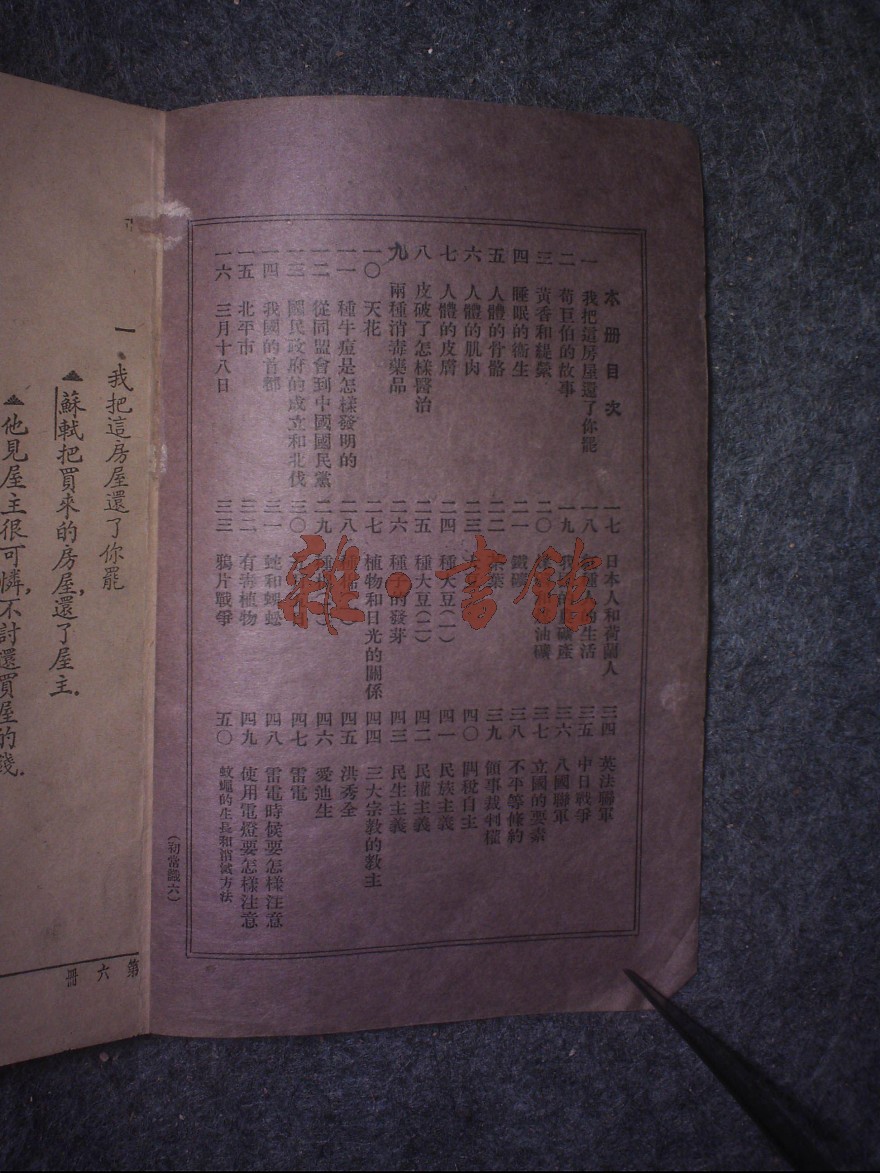 本册目次
一 我把這房屋還了你罷
二 荀巨伯的故事
三 黃香和緹縈
四 睡眠的衛生
五 人體的骨骼
六 人體的肌肉
七 人體的皮膚
八 皮破了怎樣醫治
九 兩種消毒藥品
一〇 天花
一一 種牛痘是怎樣發明的
一二 從同盟會到中國國民黨
一三 國民政府的成立和北伐
一四 我國的首都
一五 北平市
一六 三月十八日
一七 日本人和荷蘭人
一八 種人的生活
一九 我 的 礦產
二〇 油礦
二一 鐵
二二 葉
二三
二四 種大豆(一)
二五 種大豆(二)
二六 種子的發芽
二七 植物和日光的關係
二八 種
二九 種
三〇
三一 蛇和蜈蚣
三二 有毒植物
三三 鴉片戰爭
三四 英法聯軍
三五 中日戰爭
三六 八國聯軍
三七 立國的要素
三八 不平等條約
三九 領事裁判權
四〇 關稅自主
四一 民族主義
四二 民權主義
四三 民生主義
四四 三大宗教的教主
四五 洪秀全
四六 愛迪生
四七 雷電
四八 雷電時候要怎樣注意
四九 使用電燈要怎樣注意
五〇 蚊蠅的生長和消滅方法
(初常識六)
雜·書館
第六册
一 我把這房屋還了你罷
▲蘇軾把買來的房屋,還了屋主.
▲他見屋主很可憐,不討還買屋的錢.